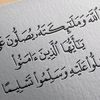 ٱللَّهَ وَمَلَٰٓئِكَتَهُۥ يُصَلُّونَ
يَٰٓأَيُّهَا ٱلَّذِينَ ءَامَنُوا۟
صَلُّوا۟ عَلَيْهِ وَسَلِّمُوا۟ تَسْلِيمًا